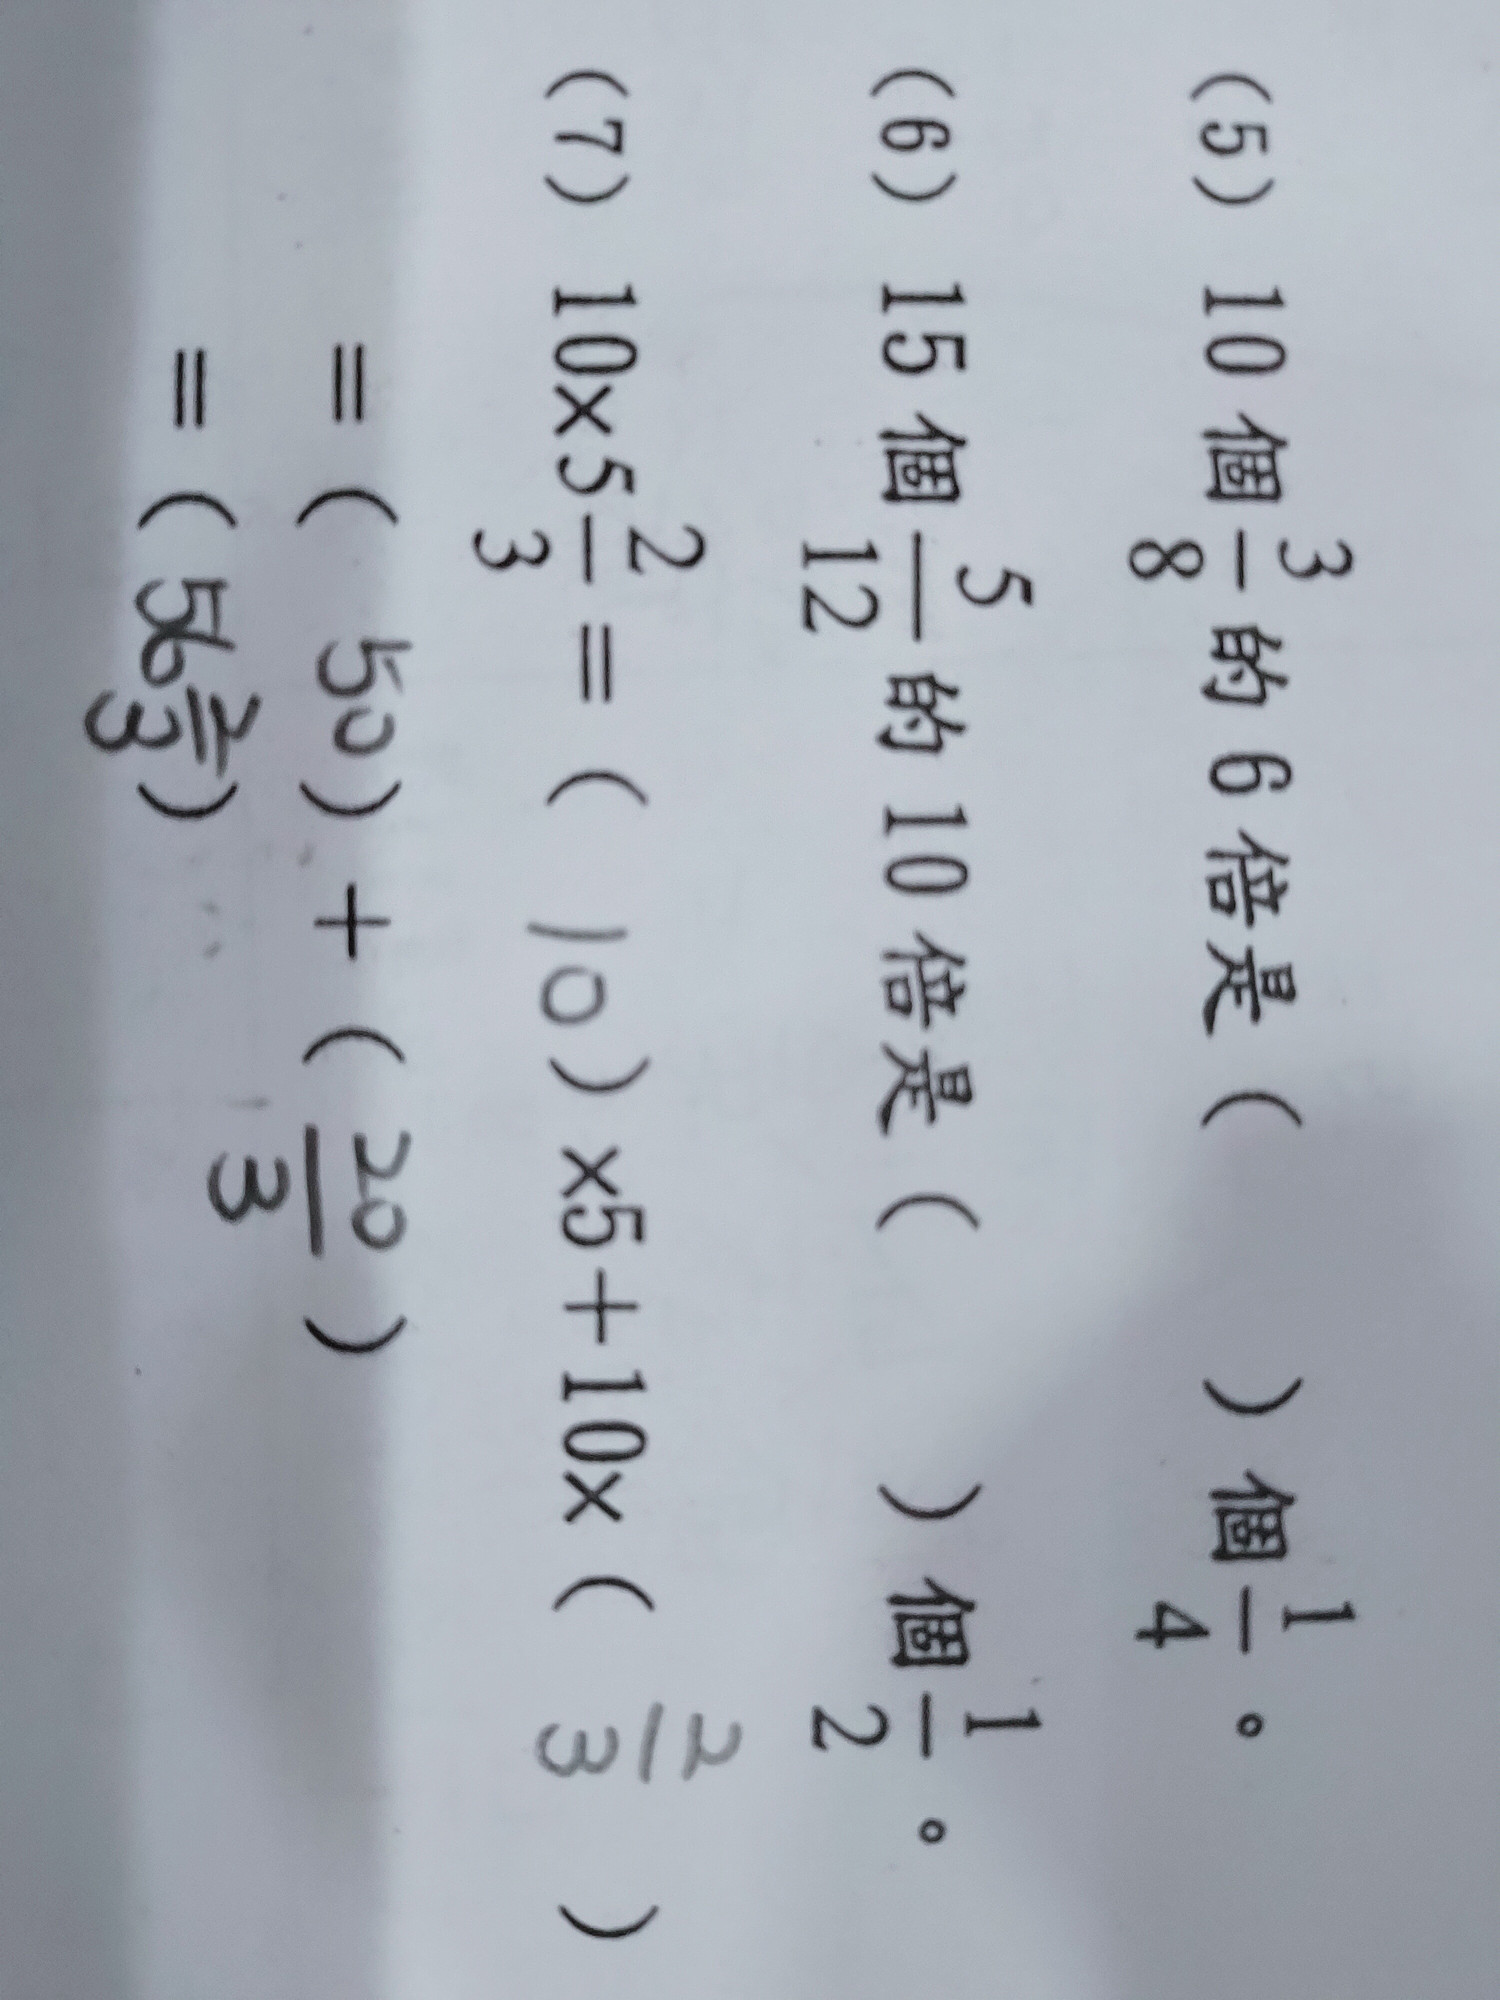 (5) 10個3/8的6倍是( )個1/4。
(6) 15個5/12的10倍是( )個1/2。
(7) 10×5 2/3=( 10 )×5+10×( 2/3 )
=( 50 )+( 20/3 )
=( 56 2/3 )